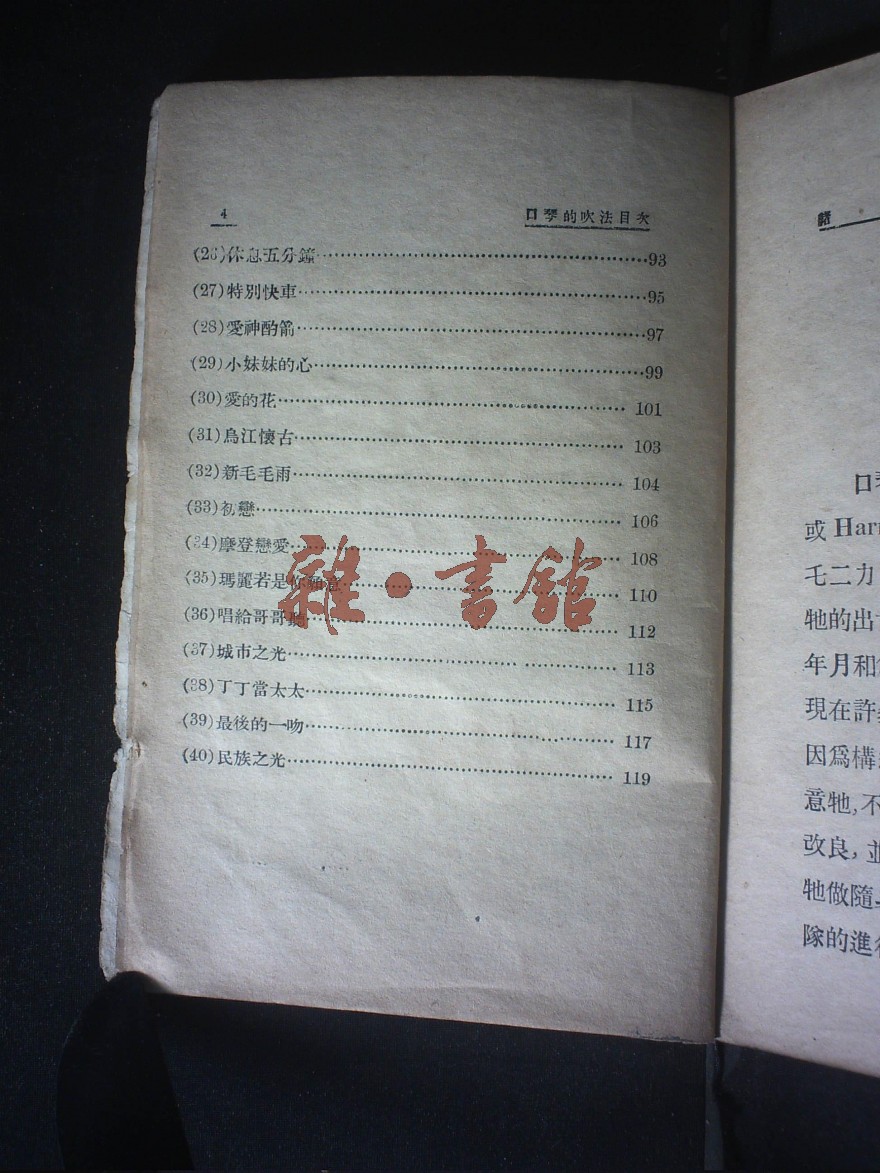 4 口琴的吹法目次
(26)休息五分鐘 93
(27)特別快車 95
(28)愛神的箭 97
(29)小妹妹的心 99
(30)愛的花 101
(31)烏江懷古 103
(32)新毛毛雨 104
(33)初戀 106
(34)摩登戀愛 108
(35)瑪麗若是你願意 110
(36)唱給哥哥聽 112
(37)城市之光 113
(38)丁丁當太太 115
(39)最後的一吻 117
(40)民族之光 119
雜·書館
緒
口琴
或Har
毛二力
牠的出
年月和
現在許
因爲構
意牠,不
改良,並
牠做隨
隊的進行